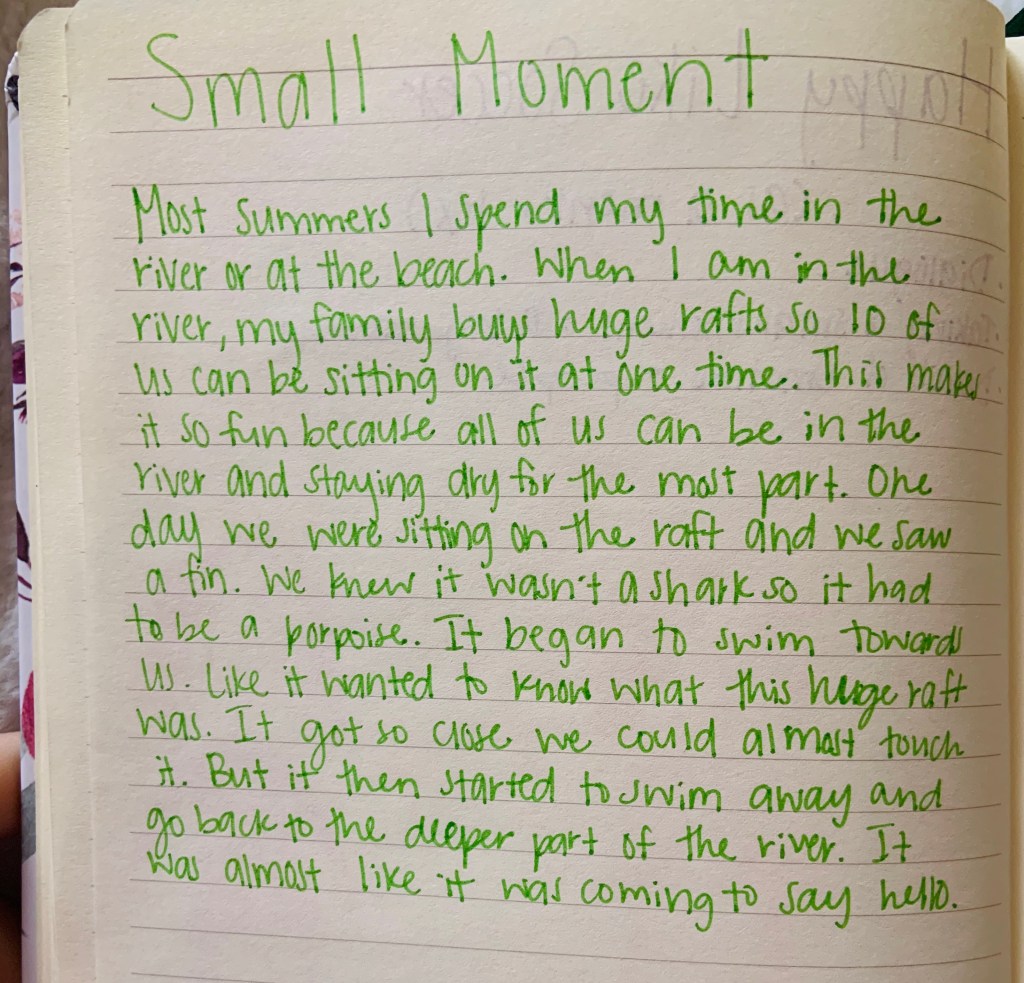 Small Moment
Most summers I spend my time in the
river or at the beach. When I am in the
river, my family buys huge rafts so 10 of
us can be sitting on it at one time. This makes
it so fun because all of us can be in the
river and staying dry for the most part. One
day we were sitting on the raft and we saw
a fin. We knew it wasn't a shark so it had
to be a porpoise. It began to swim towards
us. Like it wanted to know what this huge raft
was. It got so close we could almost touch
it. But it then started to swim away and
go back to the deeper part of the river. It
was almost like it was coming to say hello.